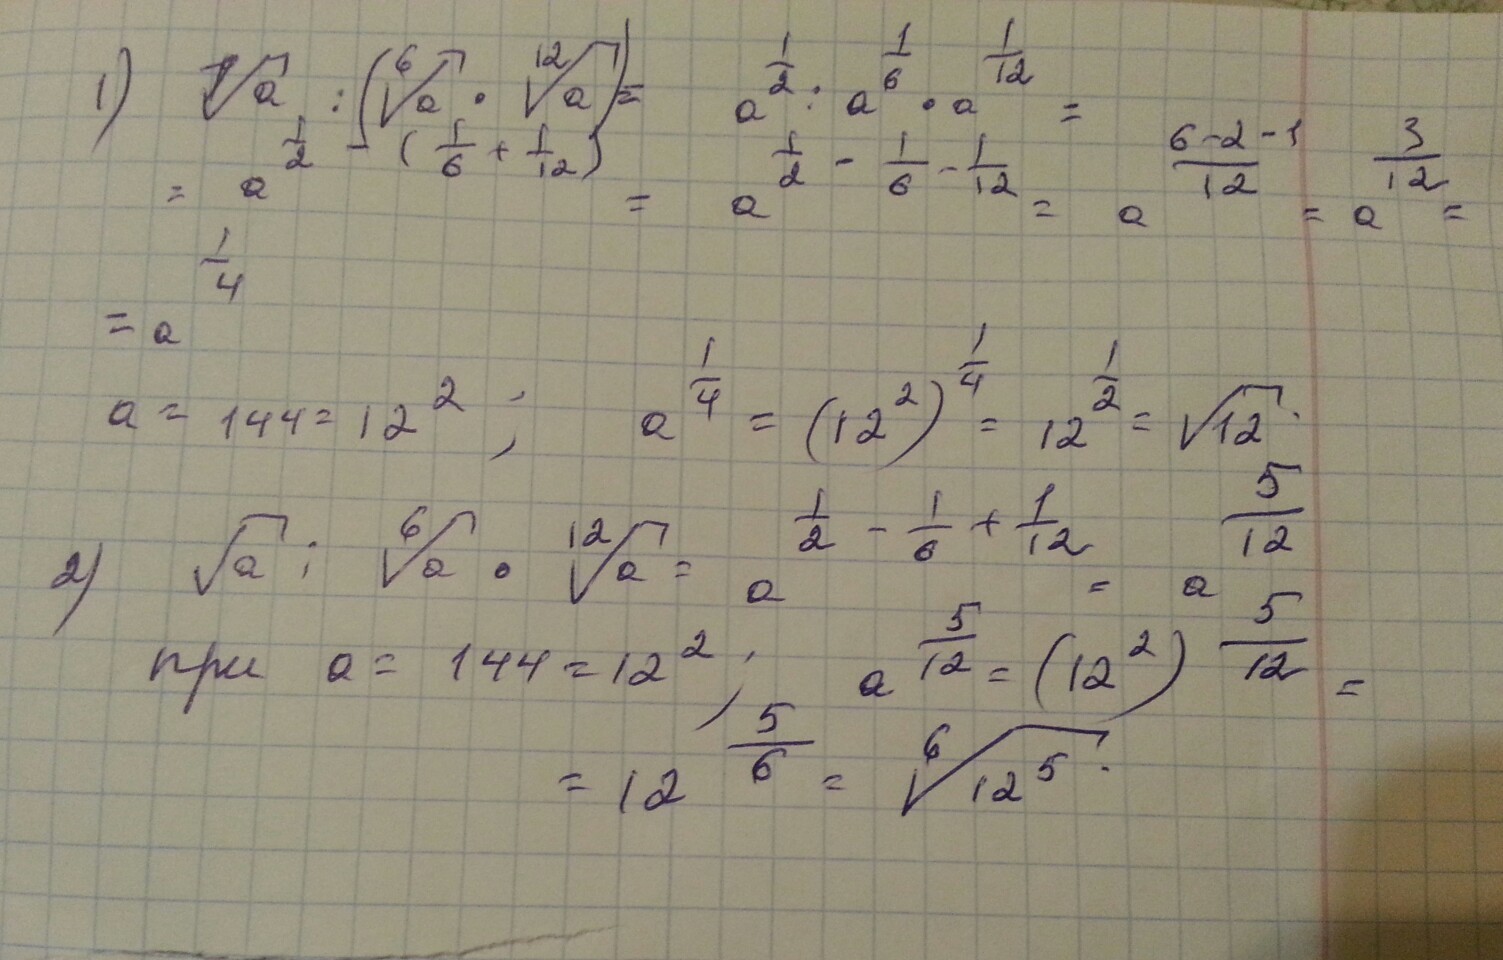 1) √a : (⁶√a · ¹²√a) = a^(1/2) : a^(1/6) · a^(1/12) =
= a^(1/2 - (1/6 + 1/12)) = a^(1/2 - 1/6 - 1/12) = a^((6-2-1)/12) = a^(3/12) =
= a^(1/4)
a = 144 = 12² ; a^(1/4) = (12²)^(1/4) = 12^(1/2) = √12.
2) √a : ⁶√a · ¹²√a = a^(1/2 - 1/6 + 1/12) = a^(5/12)
при a = 144 = 12² ; a^(5/12) = (12²)^(5/12) =
= 12^(5/6) = ⁶√12⁵.